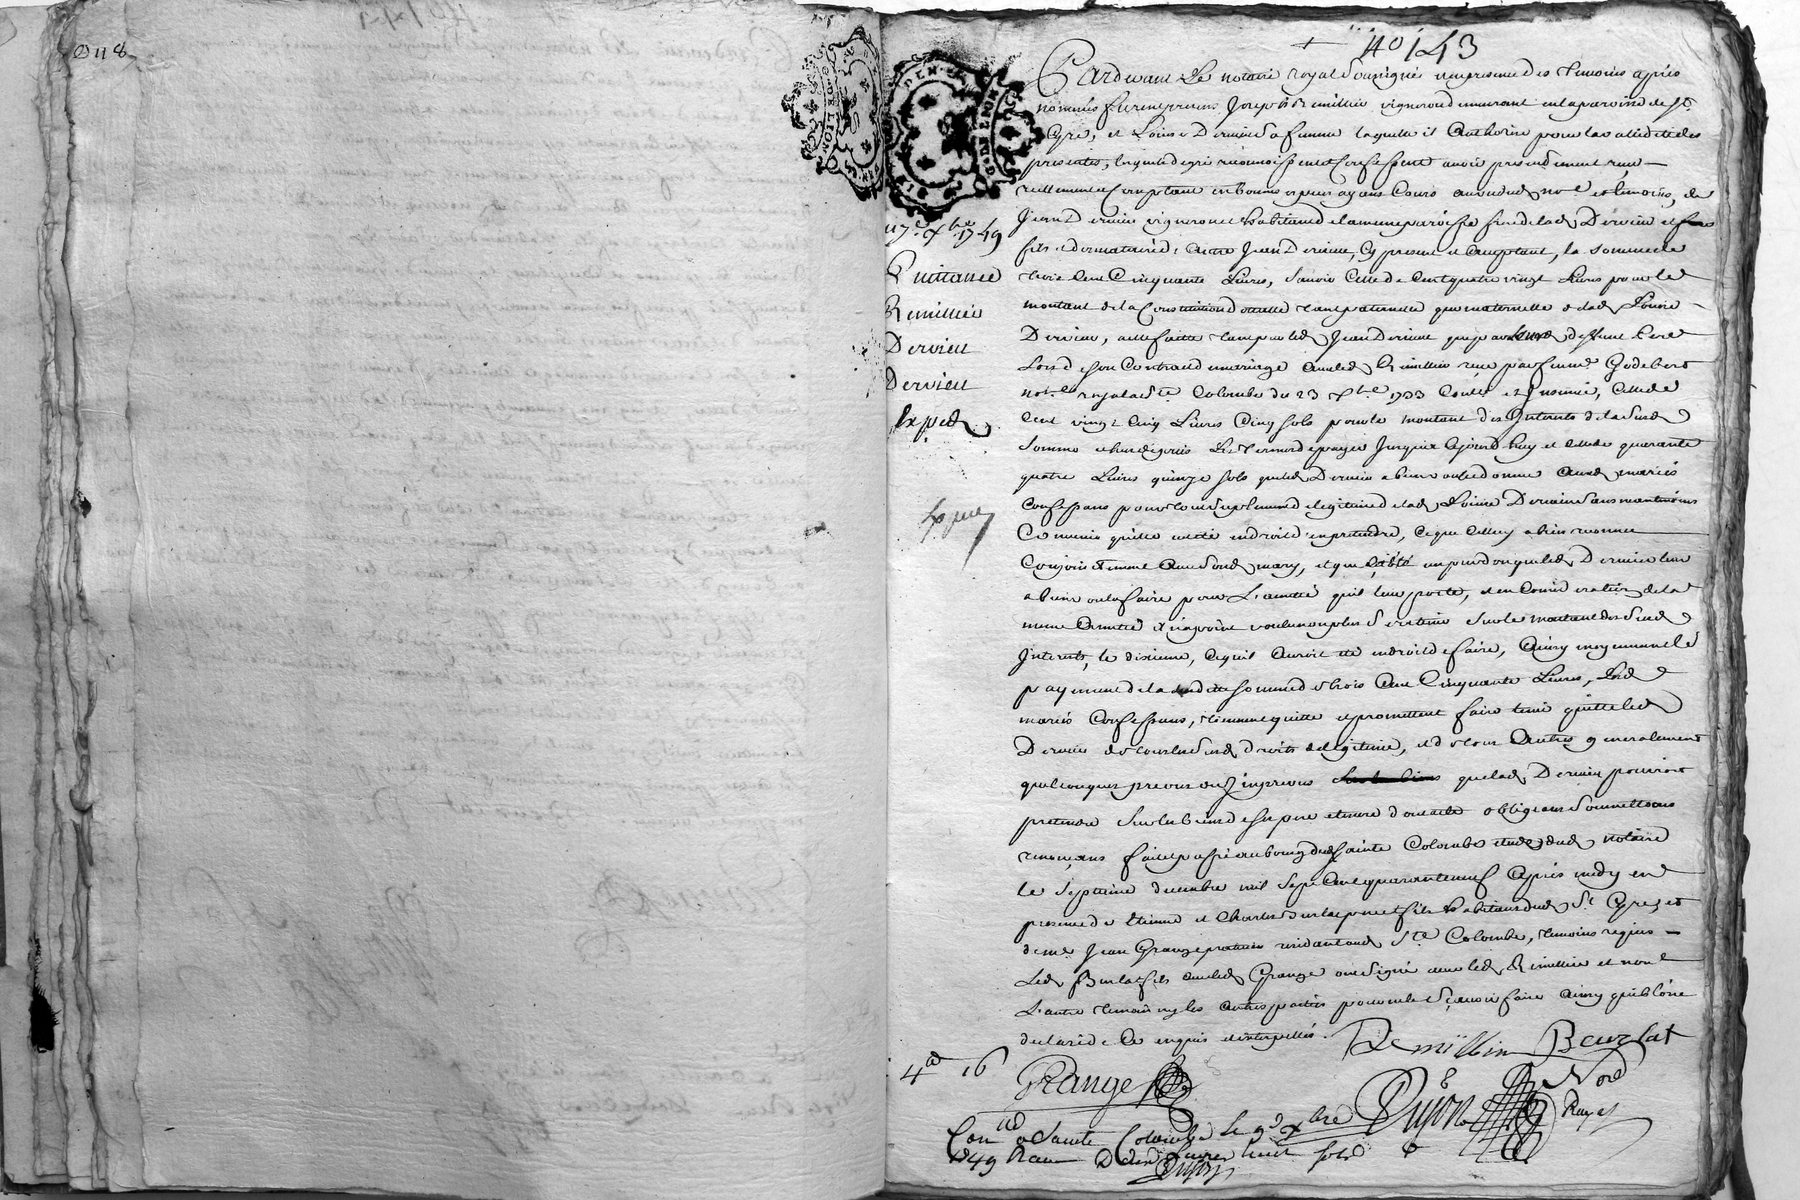 118
n° 143
Pardevant Le notaire royal soussigné en presence des temoins apres
nommés furent presens Joseph Remillier vigneron demeurant en la paroisse de St
Cyre, et Louise Dervieu sa femme laquelle il Authorise pour la validité des
presentes, lesquels de gré reconnoissent et Confessent avoir presentement receu
reellement et Comptant en bonnes especes ayans Cours au vu dud no.re et temoins, de
Jean Dervieu vigneron et habitant de la meme paroisse frere de lad Dervieu et
fils et donnataire d'autre Jean Dervieu, Cy present et acceptant, la somme de
trois Cent Cinquante Livres, scavoir Celle de Cent quatre vingt Livres pour le
montant de la Constitution dotalle tant paternelle que maternelle de lad Louise
Dervieu, a elle faitte tant par led Jean Dervieu que par deffunt pere
Lors de son Contrat de mariage avec led Remillier receu par feu me Godebert
no.re royal a Ste Colombe du 23 1733 Conté et Insinué, Celle de
Cent vingt Cinq Livres Cinq sols pour le montant des Interets de lad
somme echeus depuis Le Terme de payer Jusqua aujourd'huy et celle de quarante
quatre Livres quinze sols que led Dervieu a bien voulu donner auxd mariés
Confessans pour tout suplement de legitime de lad Louise Dervieu sans neantmoins
Convenir qu'elle ait été en droit d'en pretendre, Ce que Celle cy a bien reconnu
Conjointement avec sond mary, et que C'a été un pur don que led Dervieu leur
a bien voulu faire pour L'amitié qu'il leur porte, et en Consideration de la
meme Amitié n'ayant voulu non plus retenir sur le montant des susd
Interets, le dixieme, Ce qu'il auroit été en droit de faire, Ainsy moyennant le
payement de la somme de trois Cent Cinquante Livres, Lesd
mariés Confessans, tiennent quitte et promettent faire tenir quitte led
Dervieu de tous les susd droits de legitime, et de tous Autres generalement
quelconques preveus ou impreveus que lad Dervieu pourroit
pretendre sur les biens de ses pere et mere dont acte obligeans soumettans
renonçans fait et passé au bourg de Sainte Colombe etude dud notaire
le septieme decembre mil sept Cent quarante neuf Après midy en
presence de Etienne et Charles Burlat pere et fils habitans dud St Cyre, et
de me Jean Grange praticien residant aud Ste Colombe, temoins requis
Led Burlat fils avec led Grange ont signé avec led Remillier et non
L'autre temoin ny les autres parties pour ne le sçavoir faire Ainsy qu'ils l'ont
declaré de Ce enquis et interpellés.
7e xbre 1749
Quittance
Remillier
Dervieu
Dervieu
Exped
Remillier Burlat
Grange
Dujon No.re Royal
Con.llé a Sainte Colombe le 9e xbre
1749 Receu Livres huit sols
Dujon